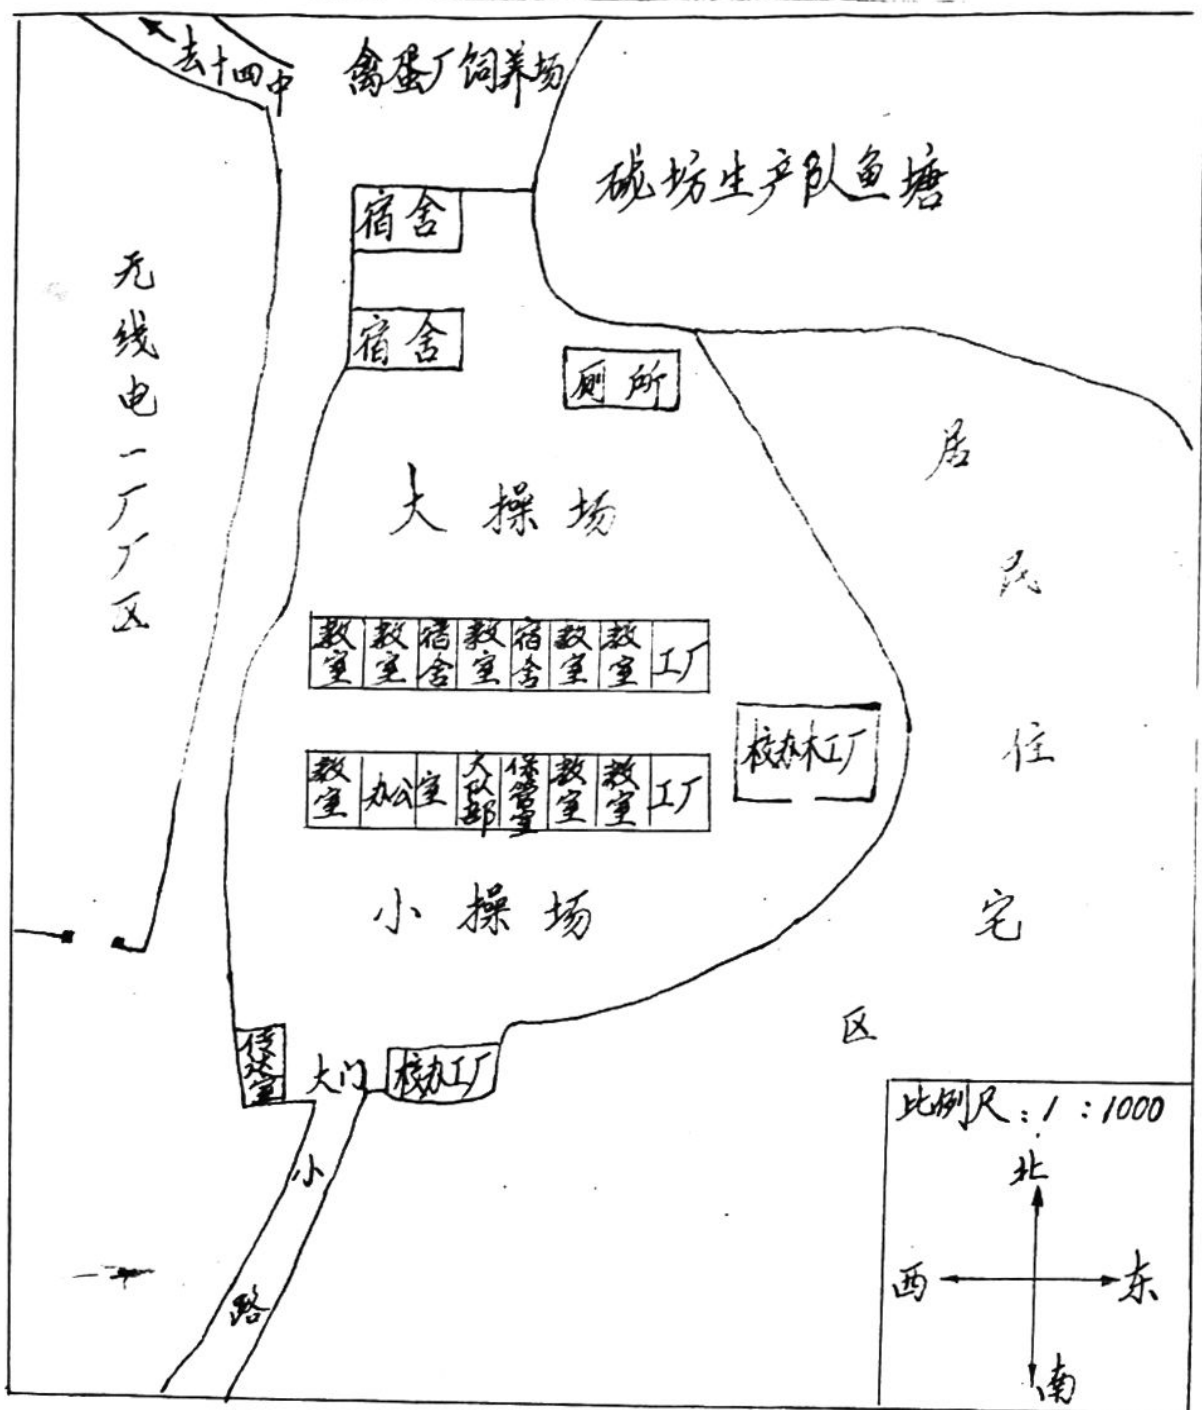 去十四中
禽蛋厂饲养场
硙坊生产队鱼塘
宿舍
宿舍
厕所
无线电一厂厂区
大操场
居民住宅区
教室 教室 宿舍 教室 宿舍 教室 教室 工厂
校办木工厂
教室 办公室 大队部 保管室 教室 教室 工厂
小操场
传达室
大门
校办工厂
小路
比例尺:1:1000
北
西
东
南